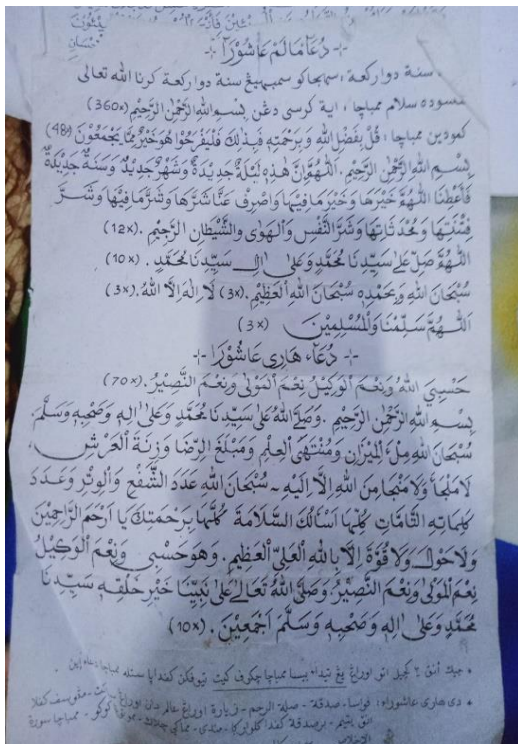 -:- دُعَاء مَالَم عَاشُوْرَا -:-
سنة دوا ركعة : سمبهيڠ سنة دوا ركعة كرنا الله تعالى
سسوده سلام ممباچا ، اية كرسي دڠن بِسْمِ اللهِ الرَّحْمٰنِ الرَّحِيْمِ (360x)
كمودين ممباچا : قُلْ بِفَضْلِ اللهِ وَبِرَحْمَتِهِ فَبِذٰلِكَ فَلْيَفْرَحُوْا هُوَ خَيْرٌ مِمَّا يَجْمَعُوْنَ (48x)
بِسْمِ اللهِ الرَّحْمٰنِ الرَّحِيْمِ . اَللّٰهُمَّ اِنَّ هٰذِهِ لَيْلَةٌ جَدِيْدَةٌ وَشَهْرٌ جَدِيْدٌ وَسَنَةٌ جَدِيْدَةٌ
فَاَعْطِنَا اللّٰهُمَّ خَيْرَهَا وَخَيْرَ مَا فِيْهَا وَاصْرِفْ عَنَّا شَرَّهَا وَشَرَّ مَا فِيْهَا وَشَرَّ
فِتْنَتِهَا وَمُحْدَثَاتِهَا وَشَرَّ النَّفْسِ وَالْهَوٰى وَالشَّيْطَانِ الرَّجِيْمِ . (12x)
اَللّٰهُمَّ صَلِّ عَلٰى سَيِّدِنَا مُحَمَّدٍ وَعَلٰى اٰلِ سَيِّدِنَا مُحَمَّدٍ . (10x)
سُبْحَانَ اللهِ وَبِحَمْدِهِ سُبْحَانَ اللهِ الْعَظِيْمِ . (3x) لَا اِلٰهَ اِلَّا اللهُ . (3x)
اَللّٰهُمَّ سَلِّمْنَا وَالْمُسْلِمِيْنَ (3x)
-:- دُعَاء هَارِى عَاشُوْرَا -:-
حَسْبِيَ اللهُ وَنِعْمَ الْوَكِيْلُ نِعْمَ الْمَوْلٰى وَنِعْمَ النَّصِيْرُ . (70x)
بِسْمِ اللهِ الرَّحْمٰنِ الرَّحِيْمِ . وَصَلَّى اللهُ عَلٰى سَيِّدِنَا مُحَمَّدٍ وَعَلٰى اٰلِهِ وَصَحْبِهِ وَسَلَّمَ
سُبْحَانَ اللهِ مِلْءَ الْمِيْزَانِ وَمُنْتَهَى الْعِلْمِ وَمَبْلَغَ الرِّضَا وَزِنَةَ الْعَرْشِ ،
لَا مَلْجَأَ وَلَا مَنْجَا مِنَ اللهِ اِلَّا اِلَيْهِ ~ سُبْحَانَ اللهِ عَدَدَ الشَّفْعِ وَالْوِتْرِ وَعَدَدَ
كَلِمَاتِهِ التَّامَّاتِ كُلِّهَا اَسْأَلُكَ السَّلَامَةَ كُلَّهَا بِرَحْمَتِكَ يَا اَرْحَمَ الرَّاحِمِيْنَ
وَلَا حَوْلَ وَلَا قُوَّةَ اِلَّا بِاللهِ الْعَلِيِّ الْعَظِيْمِ . وَهُوَ حَسْبِيْ وَنِعْمَ الْوَكِيْلُ
نِعْمَ الْمَوْلٰى وَنِعْمَ النَّصِيْرُ وَصَلَّى اللهُ تَعَالٰى عَلٰى نَبِيِّنَا خَيْرِ خَلْقِهِ سَيِّدِنَا
مُحَمَّدٍ وَعَلٰى اٰلِهِ وَصَحْبِهِ وَسَلَّمَ اَجْمَعِيْنَ . (10x)
جيك انق ٢ كچيل اتو اورڠ يڠ تيدا بيسا ممباچا چكوف كيت تيوفكن كفدا ستله ممباچا دعاء اين
دى هارى عاشوراء : فواسا - صدقة - صلة الرحم - زيارة اورڠ عالم - مڠوسف كفلا
انق يتيم - برصدقة كفدا كلوارگا - مندى - مماكى چلك - كوكو - ممباچا سورة